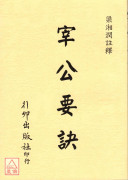 梁湘潤註釋
宰公要訣
行卯出版社印行